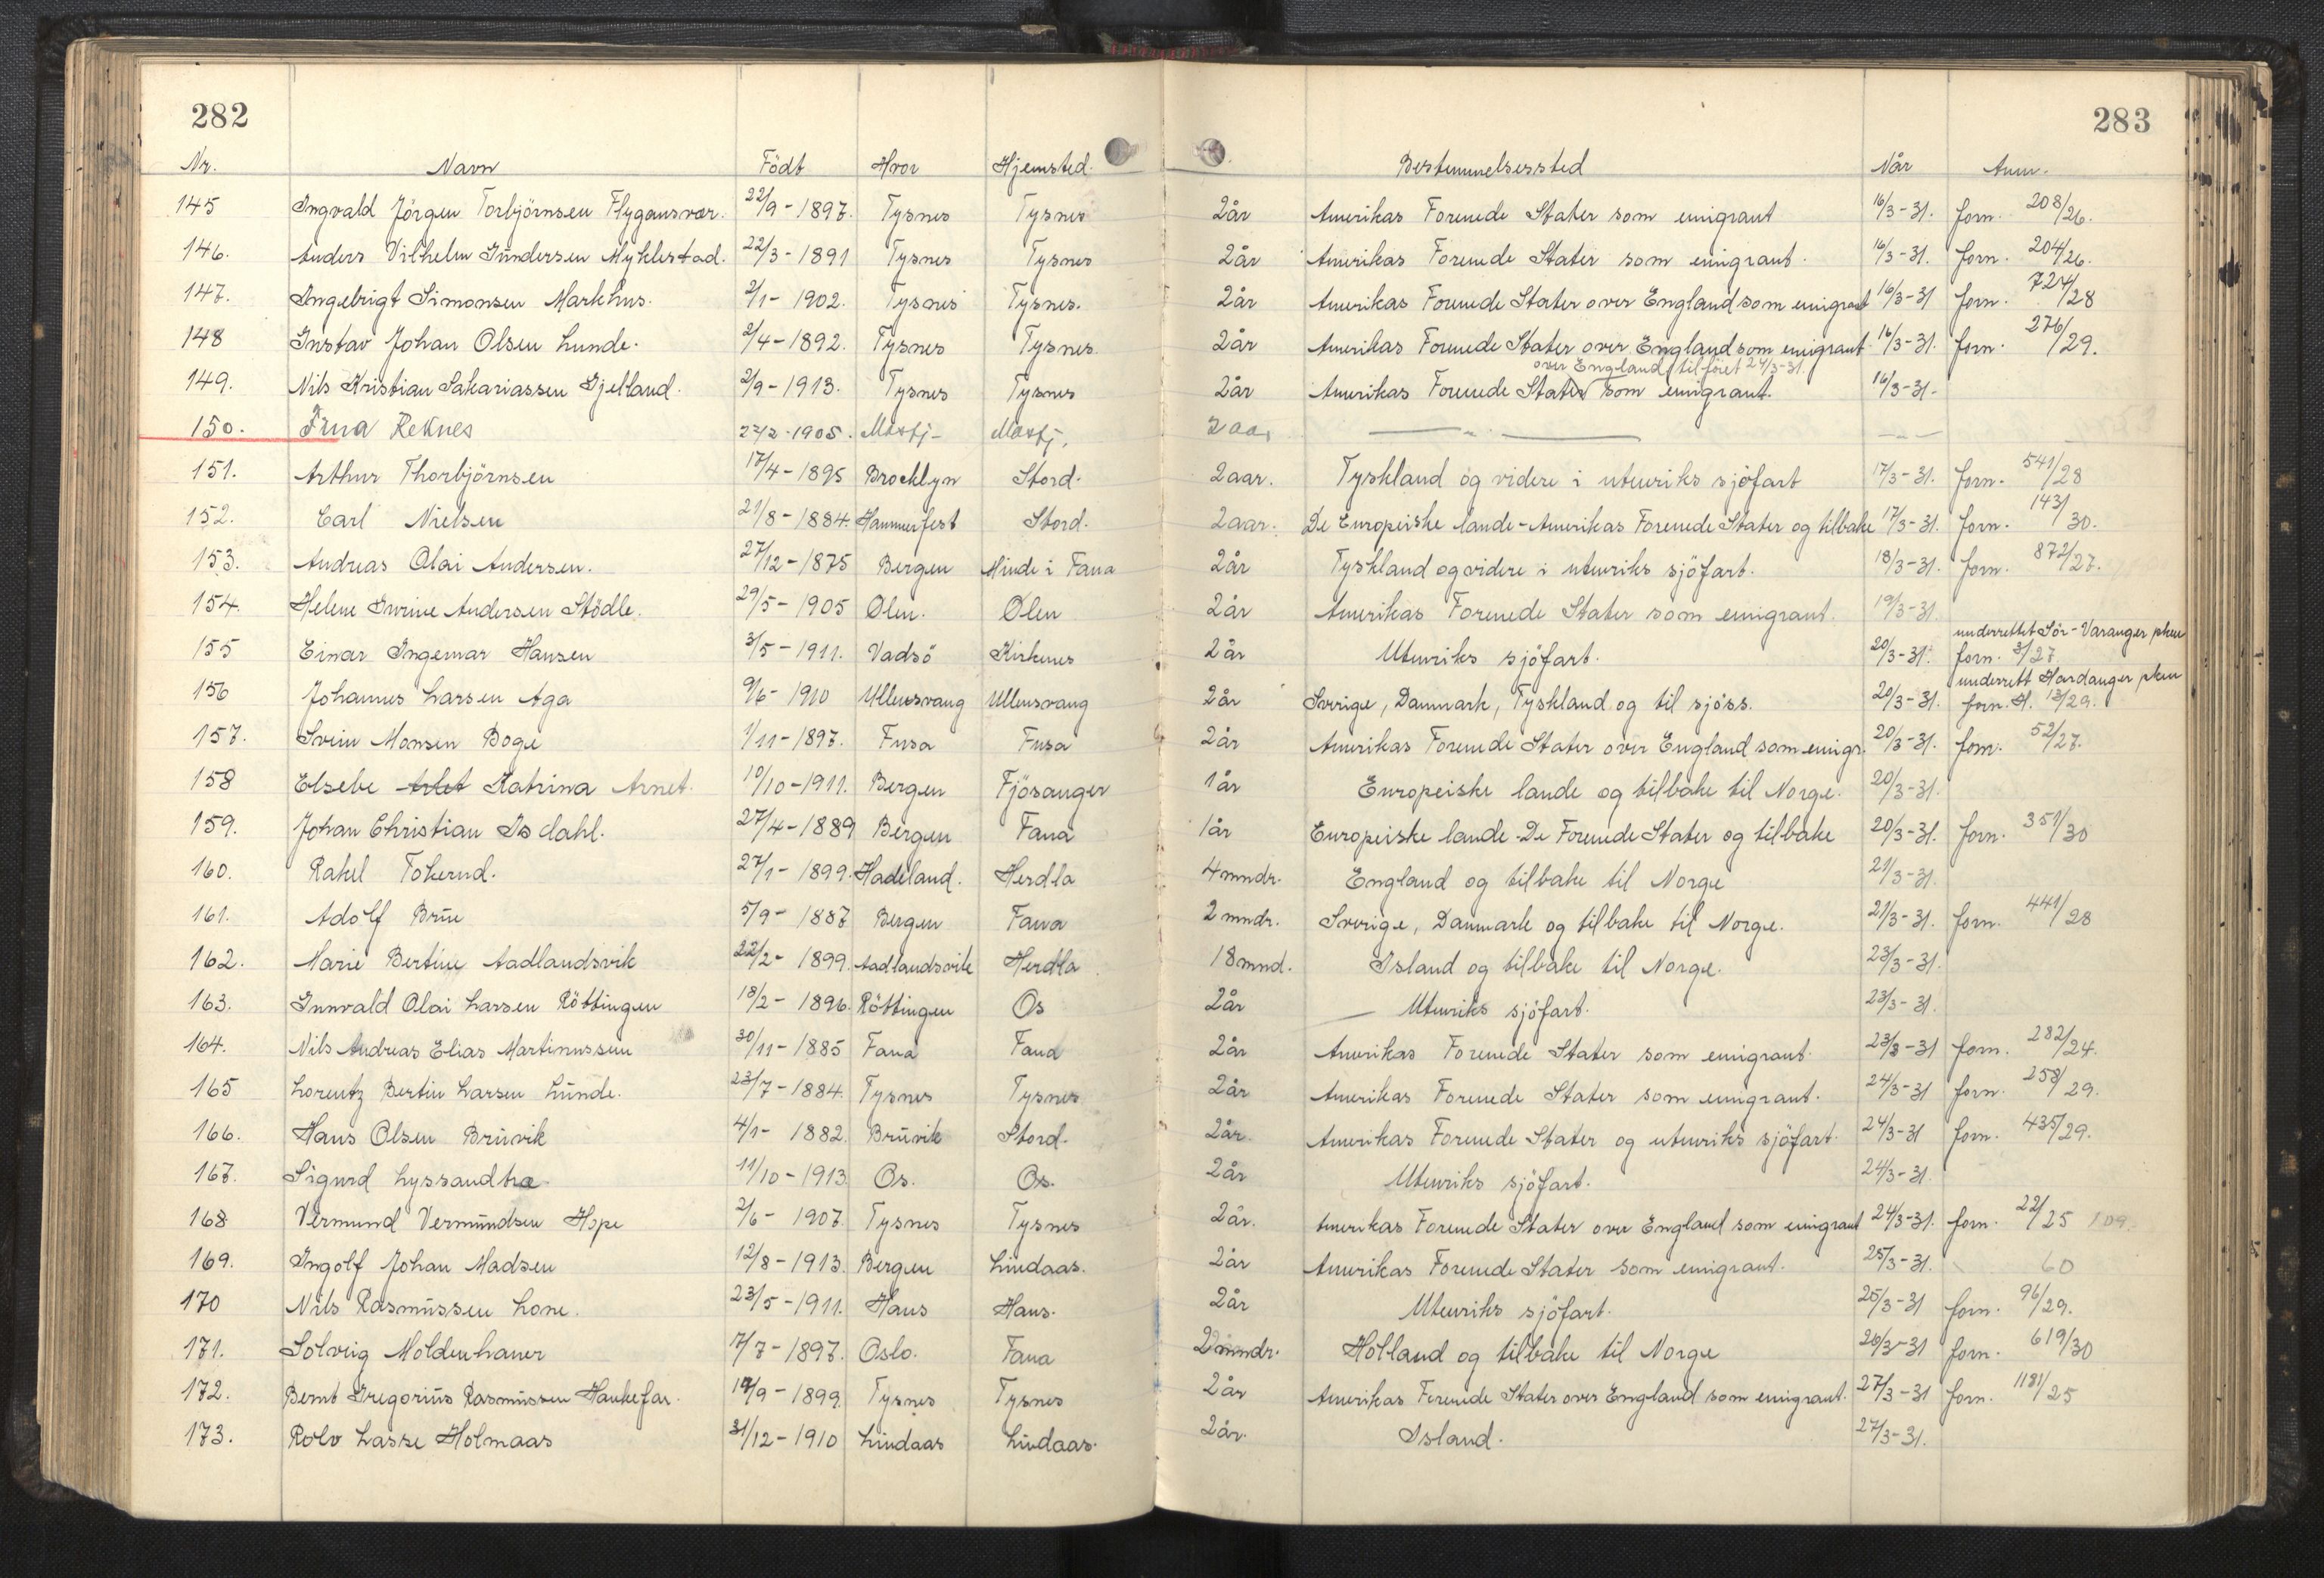 282 283
Nr. Navn Födt Hvor Hjemsted. Bestemmelsessted Når Anm.
145 Ingvald Jörgen Torbjörnsen Flygansvær. 22/9-1897. Tysnes Tysnes 2år Amerikas Forenede Stater som emigrant 16/3-31. forn. 208/26.
146. Anders Vilhelm Gundersen Myklestad. 22/3-1891 Tysnes Tysnes 2år Amerikas Forenede Stater som emigrant. 16/3-31. forn. 204/26.
147. Ingebrigt Simonsen Markhus. 2/1-1902. Tysnes Tysnes. 2år Amerikas Forenede Stater over England som emigrant 16/3-31 forn. 724/28
148 Gustav Johan Olsen Lunde. 2/4-1892. Tysnes Tysnes. 2år Amerikas Forenede Stater over England som emigrant 16/3-31. forn. 276/29.
over England tilföiet 24/3-31.
149. Nils Kristian Sakariassen Gjelland. 2/9-1913. Tysnes Tysnes 2år Amerikas Forenede Stater som emigrant. 16/3-31-
150. Reknes -1905. 2 aa,
151. Arthur Thorbjörnsen 17/4-1895 Brocklyn Stord. 2aar. Tyskland og videre i utenriks sjöfart 17/3-31. forn. 541/28
152. Carl Nielsen 21/8-1884. Hammerfest Stord. 2aar. De Europeiske lande-Amerikas Forenede Stater og tilbake 17/3-31. forn. 143/30.
153. Andreas Olai Andersen. 27/12-1875 Bergen Minde i Fana 2år Tyskland og videre i utenriks sjöfart. 18/3-31. forn. 872/27.
154. Helene Gurine Andersen Stödle. 29/5-1905 Ølen. Ølen 2år Amerikas Forenede Stater som emigrant. 19/3-31.
underrettet Sör-Varanger pkm
155 Einar Ingemar Hansen 3/5-1911. Vadsö Kirkenes 2år Utenriks sjöfart. 20/3-31. forn. 3/27
underrett Hardanger pkm
156 Johannes Larsen Aga 9/6-1910 Ullensvang Ullensvang 2år Sverige, Danmark, Tyskland og til sjöss. 20/3-31. forn. H. 13/29.
157. Svein Monsen Boge 1/11-1897. Fusa Fusa 2år Amerikas Forenede Stater over England som emigr. 20/3-31. forn. 52/27.
158 Elsebe Arlet Katrina Arnet. 10/10-1911. Bergen Fjösanger 1år Europeiske lande og tilbake til Norge. 20/3-31.
159. Johan Christian Isdahl. 27/4-1889 Bergen Fana 1år Europeiske lande-De Forenede Stater og tilbake 20/3-31. forn. 351/30
160. Rakel Tokerud. 27/1-1899. Hadeland. Herdla 4mndr. England og tilbake til Norge 21/3-31.
161. Adolf Brüe 5/9-1887 Bergen Fana 2mndr. Sverige, Danmark og tilbake til Norge. 21/3-31. forn. 441/28
162. Marie Bertine Aadlandsvik 22/2-1899. Aadlandsvik Herdla 18mnd. Island og tilbake til Norge. 23/3-31.
163. Gunvald Olai Larsen Röttingen 18/2-1896. Röttingen Os 2år Utenriks sjöfart. 23/3-31.
164. Nils Andreas Elias Martinussen 30/11-1885 Fana Fana 2år Amerikas Forenede Stater som emigrant. 23/3-31 forn. 282/24.
165 Lorentz Bertin Larsen Lunde. 23/7-1884. Tysnes Tysnes 2år Amerikas Forenede Stater som emigrant. 24/3-31 forn. 258/29.
166. Hans Olsen Bruvik 4/1-1882. Bruvik Stord. 2år. Amerikas Forenede Stater og utenriks sjöfart. 24/3-31 forn. 435/29.
167. Sigurd Lyssandtræ. 11/10-1913. Os. Os. 2år Utenriks sjöfart. 24/3-31.
168 Vermund Vermundsen Hope 2/6-1907. Tysnes Tysnes 2år. Amerikas Forenede Stater over England som emigrant 24/3-31. forn. 22/25 109.
169. Ingolf Johan Madsen 12/8-1913. Bergen Lindaas. 2år Amerikas Forenede Stater som emigrant. 25/3-31. 60
170 Nils Rasmussen Lone. 23/5-1911. Haus Haus. 2år Utenriks sjöfart. 25/3-31 forn. 96/29.
171. Solveig Moldenhauer 7/7-1897. Oslo. Fana 2mndr. Holland og tilbake til Norge 26/3-31 forn. 619/30
172. Bernt Gregorius Rasmussen Haukefær. 19/9-1899. Tysnes Tysnes 2år Amerikas Forenede Stater over England som emigrant. 27/3-31 forn. 1181/25
173. Rolv Lasse Holmaas 31/12-1910 Lindaas Lindaas. 2år. Island. 27/3-31.